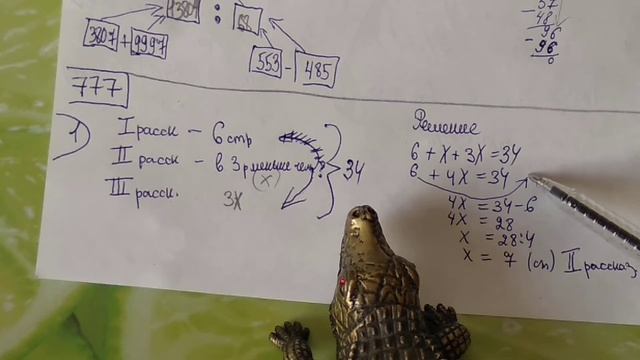 13804 : 68
3807 + 9997
553 - 485
57
- 48
96
- 96
0
777
1) I расск - 6 стр
II расск - в 3 р меньше чем ?
(x)
III расск. 3x
34
Решение
6 + x + 3x = 34
6 + 4x = 34
4x = 34 - 6
4x = 28
x = 28 : 4
x = 7 (стр) II рассказ,